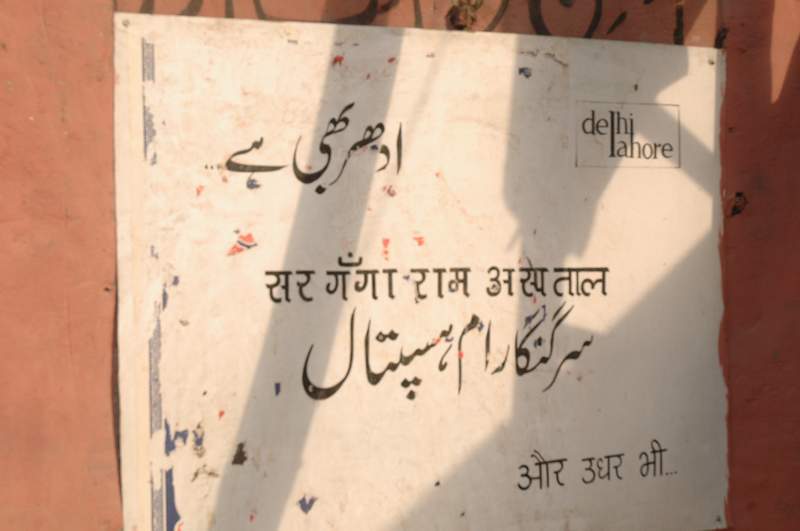 delhi
lahore
ادھر بھی ہے...
सर गँगा राम अस्पताल
سر گنگا رام ہسپتال
और उधर भी...